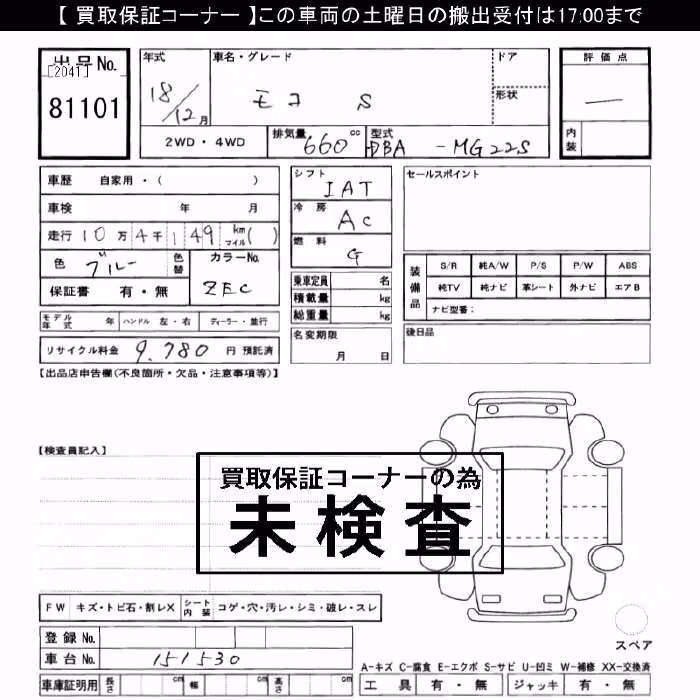 【 買取保証コーナー 】この車両の土曜日の搬出受付は17:00まで
出品No.
[2041]
81101
年式
18/12月
車名・グレード
モコ S
ドア
形状
評価点
—
内装
2WD・4WD
排気量 660 cc
型式 DBA - MG22S
車歴 自家用・( )
車検 年 月
走行 10万4千149 km マイル( )
色 ブルー 色替
カラーNo. ZEC
保証書 有・無
シフト IAT
冷房 AC
燃料 G
乗車定員 名
積載量 kg
総重量 kg
セールスポイント
装備品
S/R 純A/W P/S P/W ABS
純TV 純ナビ 革シート 外ナビ エアB
ナビ型番:
モデル年式 年 ハンドル 左・右 ディーラー・並行
名変期限 月 日
後日品
リサイクル料金 9,780 円 預託済
【出品店申告欄(不良箇所・欠品・注意事項等)】
【検査員記入】
買取保証コーナーの為
未検査
FW キズ・トビ石・割レX シート内装 コゲ・穴・汚レ・シミ・破レ・スレ
スペア
登録No.
車台No. 151530
A-キズ C-腐食 E-エクボ S-サビ U-凹ミ W-補修 XX-交換済
車庫証明用 長さ cm 幅 cm 高さ cm
工具 有・無 ジャッキ 有・無